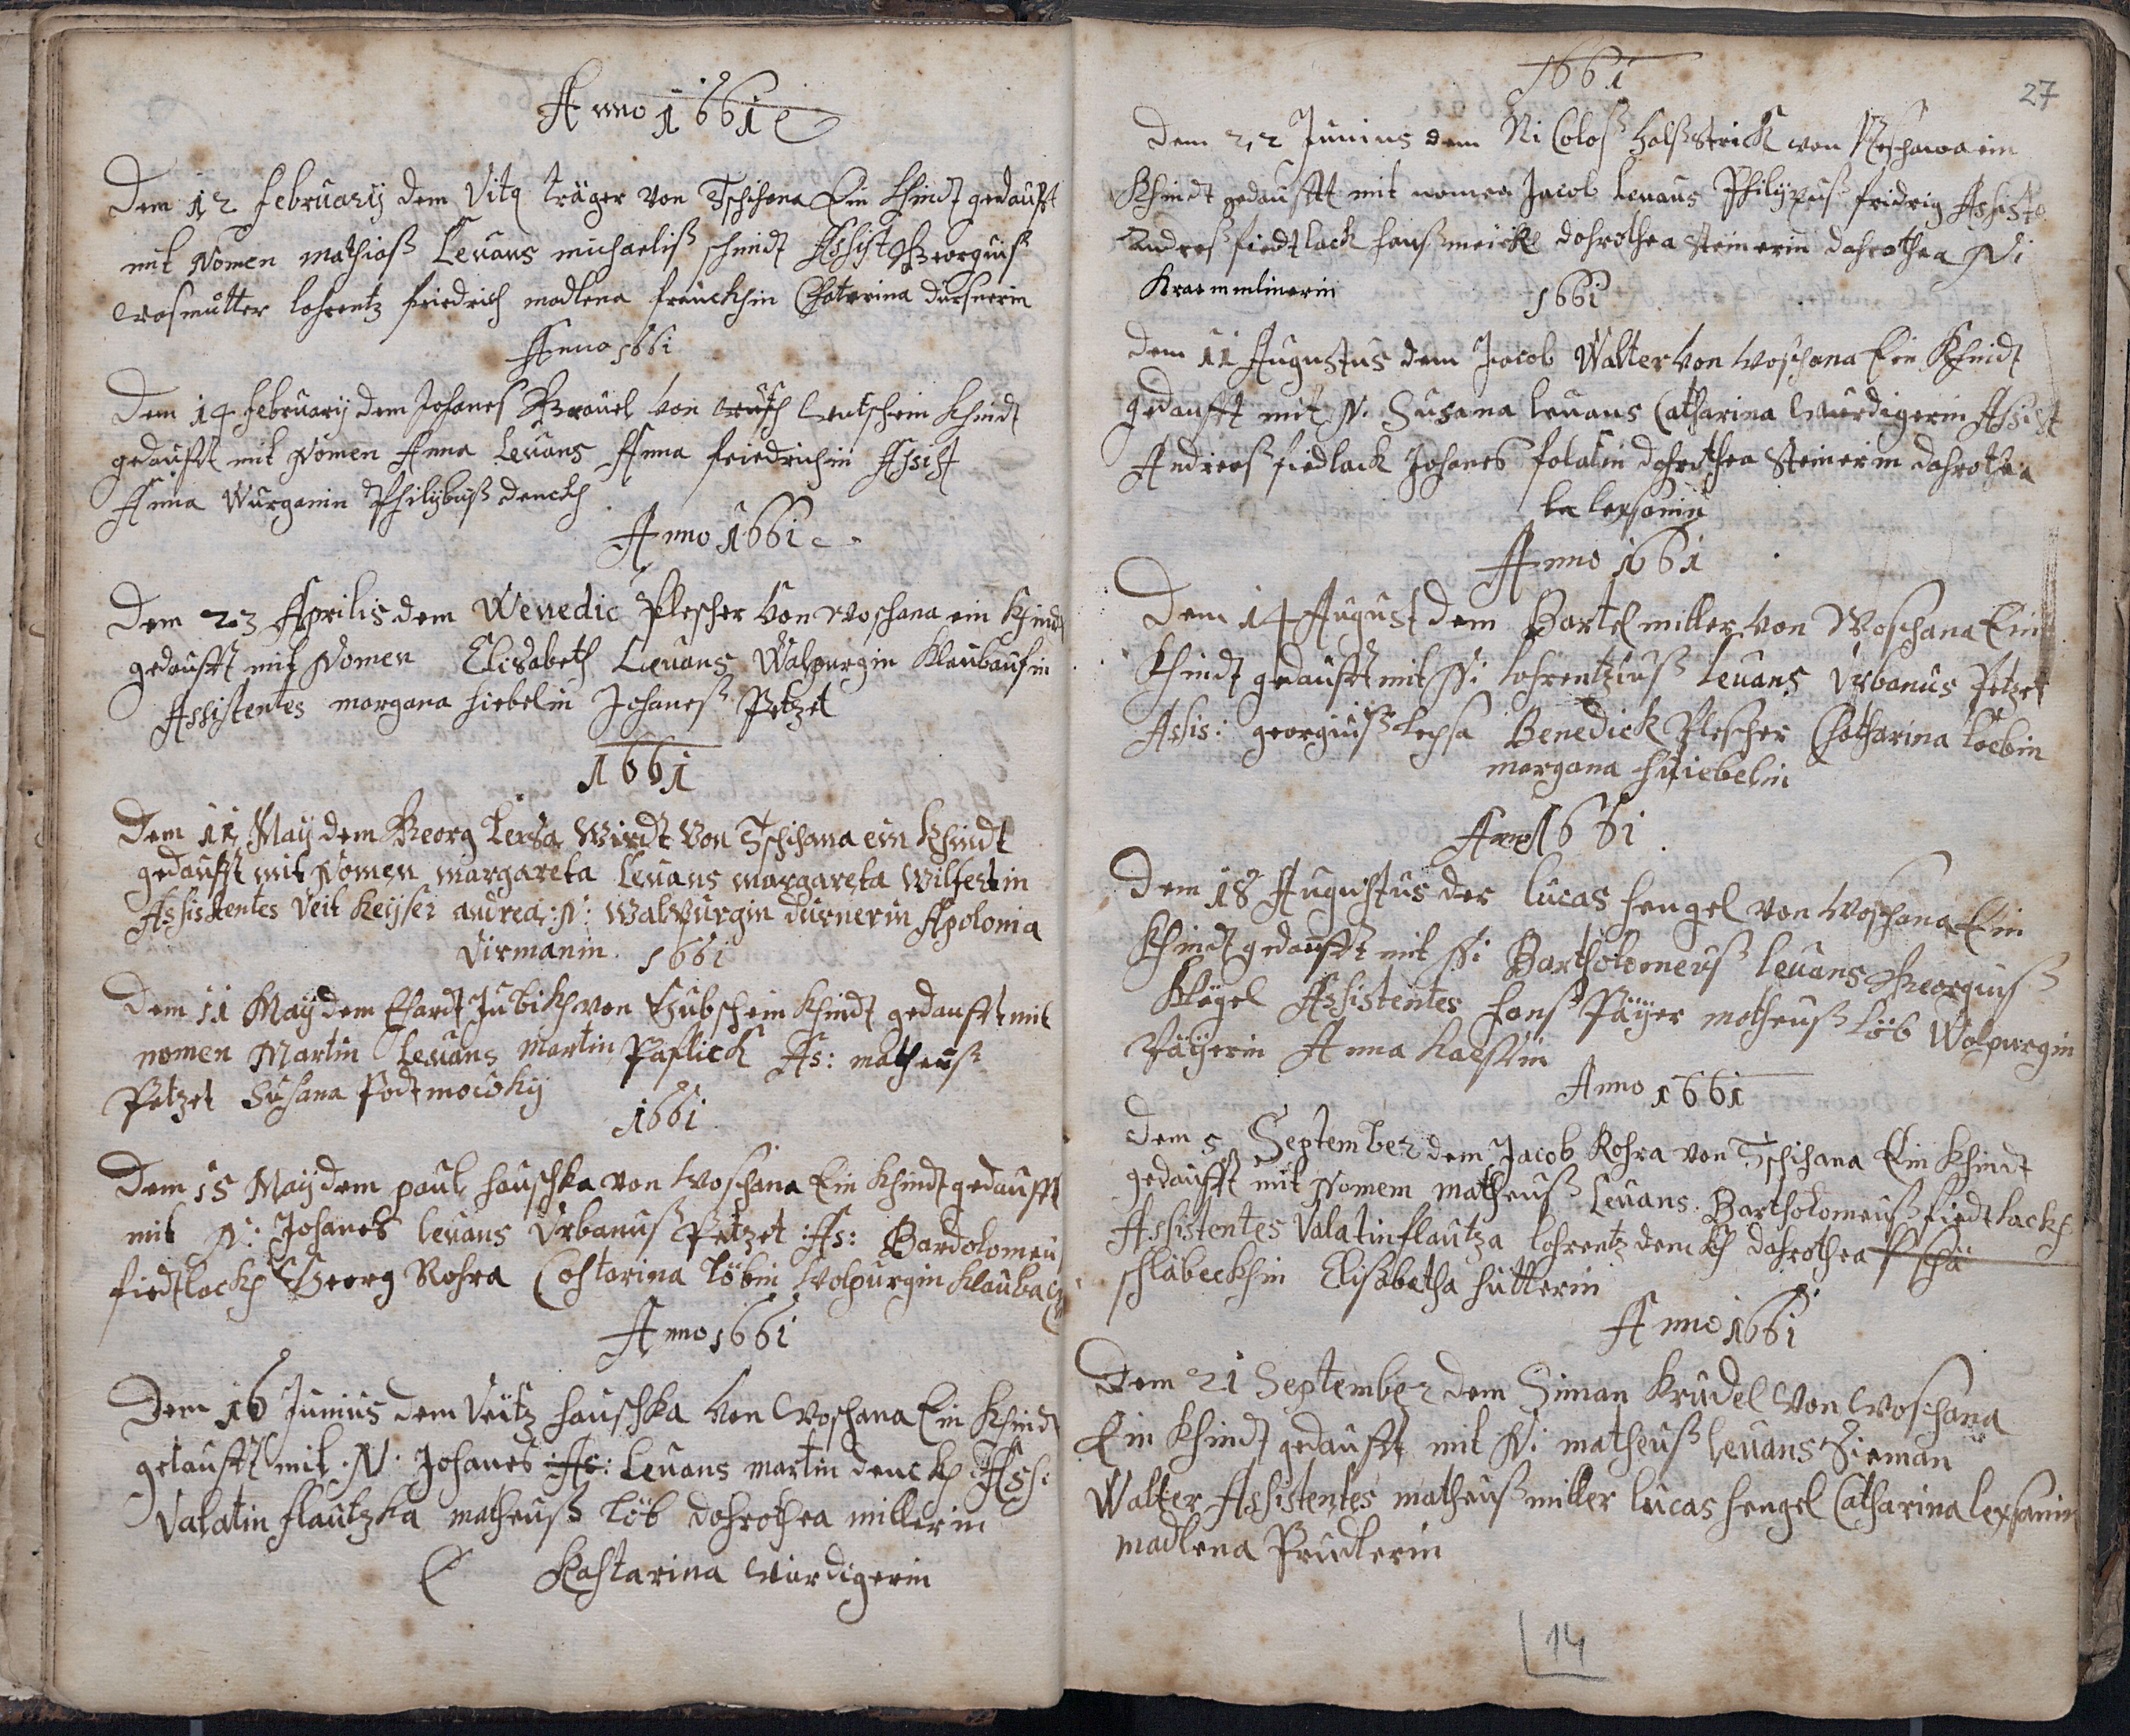 Anno 1661
Dem 12 february dem Vitq träger von Tschihana Ein Khindt gedaufft
mit Nomen mathiaß Leuans michaeliß schmidt Assist Georguiß
Wasmutter lohrentz friedrich madlena franckhin Chaterina dürsnerin
Anno 1661
Dem 14 february dem Johanes Breüel von Wutsch ein Khindt
gedaufft mit Nomen Anna Leuans Anna friedrichin Assist
Anna Wurganin Philybuß denckh
Anno 1661
Dem 23 Aprilis dem Wenedic Plescher von Woschana ein Khindt
gedaufft mit Nomen Elisabeth Leuans Walpurgin Klaubaufin
Assistentes margana hiebelin Johaneß Petzet
1661
Dem 11 May dem Georg Lexsa Wirdt Von Tschihana ein Khindt
gedaufft mit Nomen margareta Leuans margareta Wilfertin
Assistentes Veit Keyser andrea: N: Walpurgin dürnerin Apolonia
Virmanin. 1661
Dem 11 May dem Ehardt Jubikh von Subsch ein Khindt gedaufft mit
nomen Martin Leuans Martin Paflick As: matheuß
Petzet Susana Podtmocoky
1661
Dem 15 May dem paul hauschka von Woschana Ein Khindt gedaufft
mit N: Johanes leuans Vrbanuß Petzet :As: Bardolomeu
fiedtlackh Georg Rohra Cohtarina löbin Wolpurgin Klaubau
Anno 1661
Dem 16 Junius dem Veitz hauschka Von Woschana Ein Khindt
getaufft mit .N. Johanes As: Leuans martin denckh Ass:
Valatin flautzka matheuß löb dohrothea millerin
Kahtarina Würdigerin
1661
27
Dem 22 Junius dem NiColoß holßstrick von Neschawa ein
Khindt gedaufft mit nomen Jacob Leuans Philippuß fridrig Assiste
andreß fiedtlack hanß meickl dohrothea steinerin dohrothea N:
Kraemmlinerin
1661
Dem 11 Augustus dem Jacob Walter Von Woschana Ein Khindt
gedaufft mit N. Susana leuans Catharina Wurdigerin Assist
Andreaß fiedlack Johanes folatin dohrothea Steinerin dahrothea
la lexsanin
Anno 1661
Dem 14 August dem Bartel miller Von Woschana Ein
Khindt gedaufft mit N: lohrentziuß leuans Vrbanus Petzet
Assis: georgiuß lexsa Benedick Plescher Chatharina loebin
margana hüiebelin
Anno 1661
Dem 18 Augustus der lucas hengel von Woschana Ein
Khindt gedaufft mit N: Bartholomeuß leuans Georguiß
Klögel Assistentes hanß Päyer matheuß löb Wolpurgin
Päyerin Anna
Anno 1661
Dem 5 September dem Jacob Rohra von Tschihana Ein Khindt
gedaufft mit Nomem matheuß Leuans. Bartholomeuß fiedtlackh
Assistentes Valatin flautza lohrentz denckh dohrothea
schläbeckhin Elisabetha hütterin
Anno 1661
Dem 21 September dem Siman Krudel Von Woschana
Ein Khindt gedaufft mit N: matheuß leuans Sieman
Walter Assistentes matheuß miller lucas hengel Catharina lexsanin
madlena Prudlerin
14